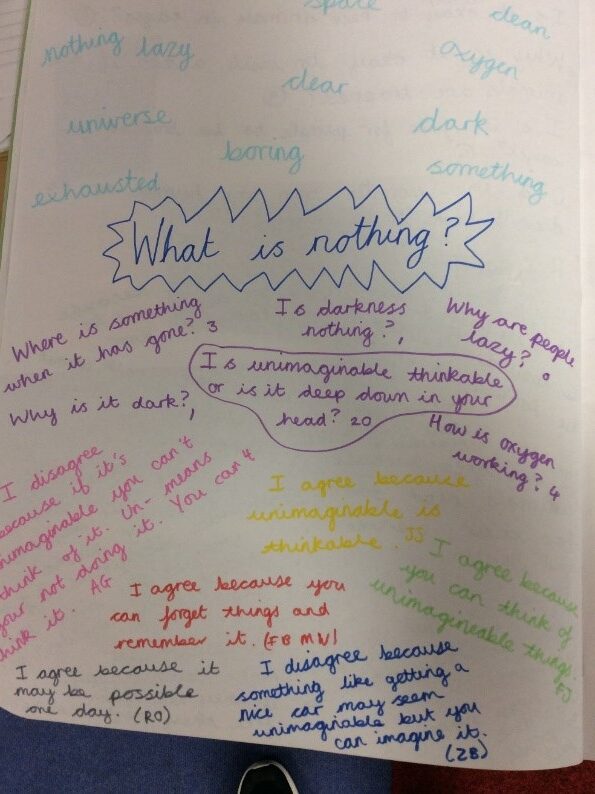 space
clean
nothing lazy
oxygen
clear
universe
dark
boring
something
exhausted
What is nothing?
Where is something
when it has gone? 3
Is darkness
nothing?, 1
Why are people
lazy? 0
Why is it dark?, 1
Is unimaginable thinkable
or is it deep down in your
head? 20
How is oxygen
working? 4
I disagree
because if it's
unimaginable you can't
think of it. Un- means
your not doing it. You can't
think it. AG
I agree because
unimaginable is
thinkable. JS
I agree because
you can think of
unimagineable things.
FJ
I agree because you
can forget things and
remember it. (FB MN)
I agree because it
may be possible
one day. (RO)
I disagree because
something like getting a
nice car may seem
unimaginable but you
can imagine it.
(ZB)